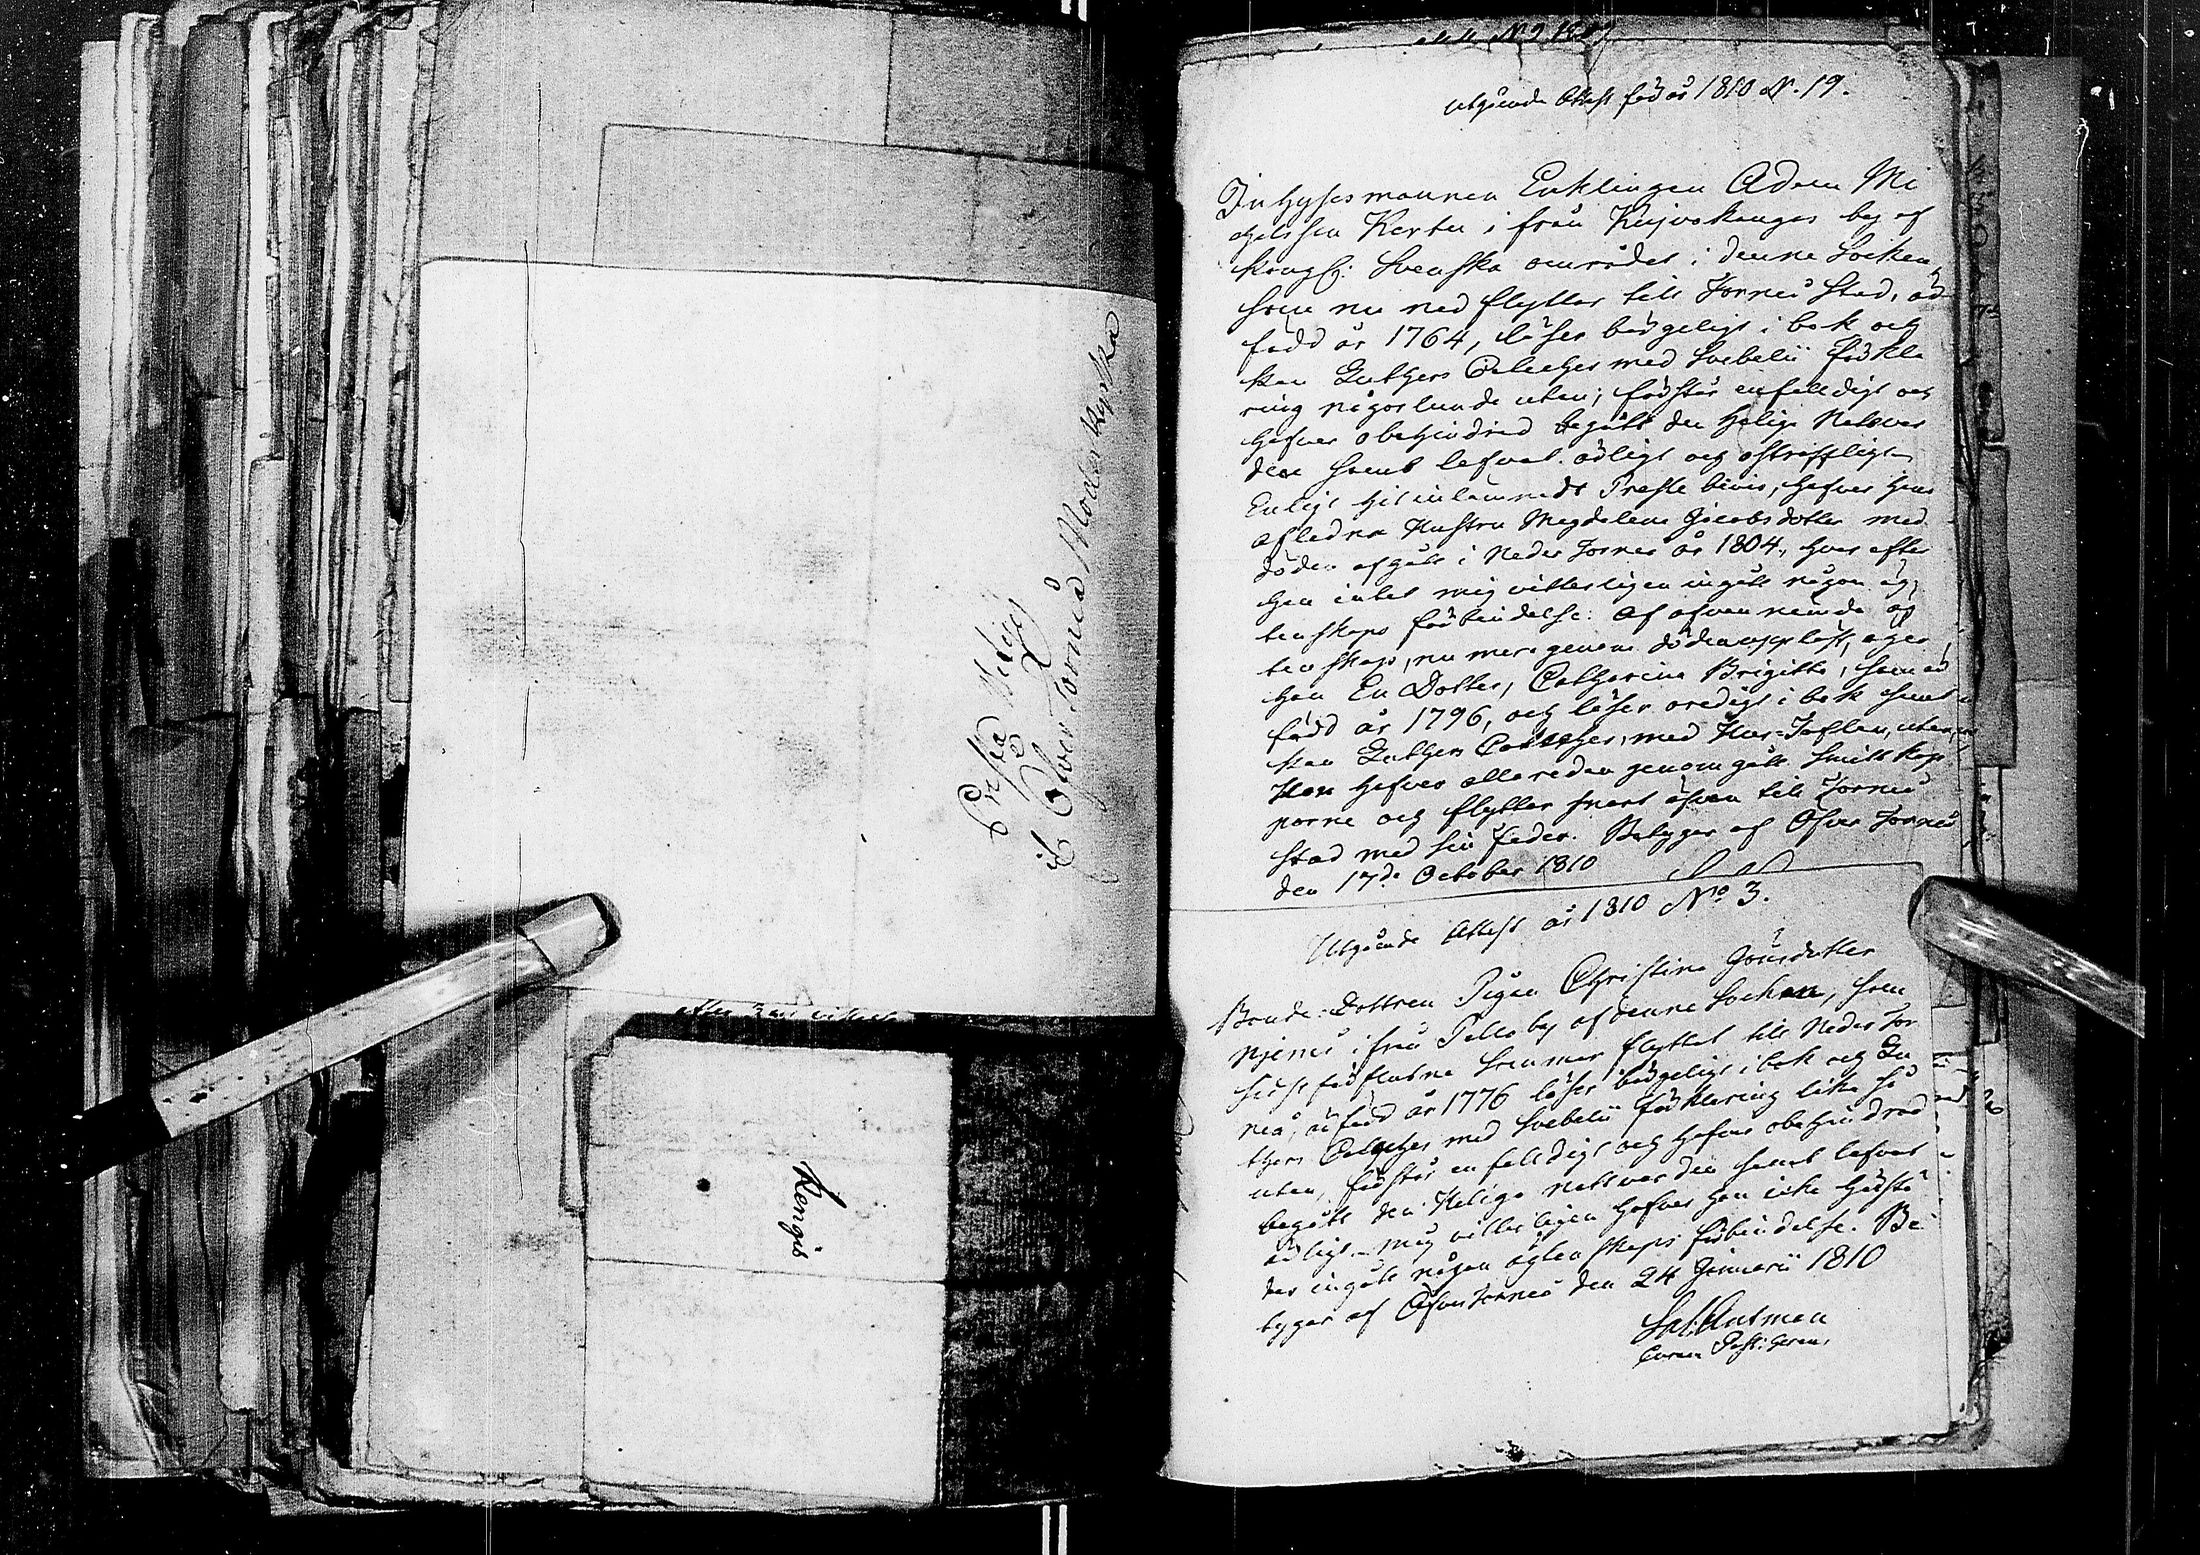 Prestá Wälej
til
Öfver Torneå Moder kyrka
Kengis
Utgående Attest för år 1810 N. 19.
Inhyses mannen Enklingen Adam Mi
chelsson Kertu i från Kujvakangas by af
Kongl: Svenska området i denne Socken,
som nu ned flyttar till Torneå Stad, är
född år 1764, läser börgeligt i bok och
kan Luthers Cateches med Svebelii förkla
ring någorlunda utan; förstår enfalldigt och
hafver obehindrad begått den Helige Nattvar
den samt lefvat ärligt och ostraffligt.
Enligt hit inlämnadt Preste bevis, hafver hans
afledna Hustru Magdalena Jacobsdotter med
döden afgått i Neder Torneå år 1804, hvar efter
han intet mig vitterligen ingått någon äg-
tenskaps förbindelse. Af ofvannemde äg
tenskap, nu mera genom döden upplöst, äger
han En Dotter, Catharina Brigitta, som är
född år 1796, och läser oredigt i bok samt
kan Luthers Cateches, med Hus-Taflan, utan,
Hon hafver allaredan genomgått Smittkop
porne och flyttar snart äfven till Torneå
Stad med sin fader. Betygar af Öfver Torneå
den 17de October 1810
Utgående Attest år 1810 No 3.
Bonde-Dottren Pigan Christina Jönsdotter
Njemi ifrån Pello by af denne Socken, som
sistförflutne Sommar flyttat till Neder Tor
neå, är född år 1776 läser börgeligt i bok och Lu
thers Cateches med Svebelii förklaring lika så
utan, förstår enfalldigt och hafver obehindrad
begått den Helige Nattvarden samt lefvat
ärligt. mig vitterligen hafver hon icke härstä
des ingått någon ägtenskaps förbindelse. Be
tygar af ÖfverTorneå den 24 Januarii 1810
Sal. Antman
Curam Past: Gerens,